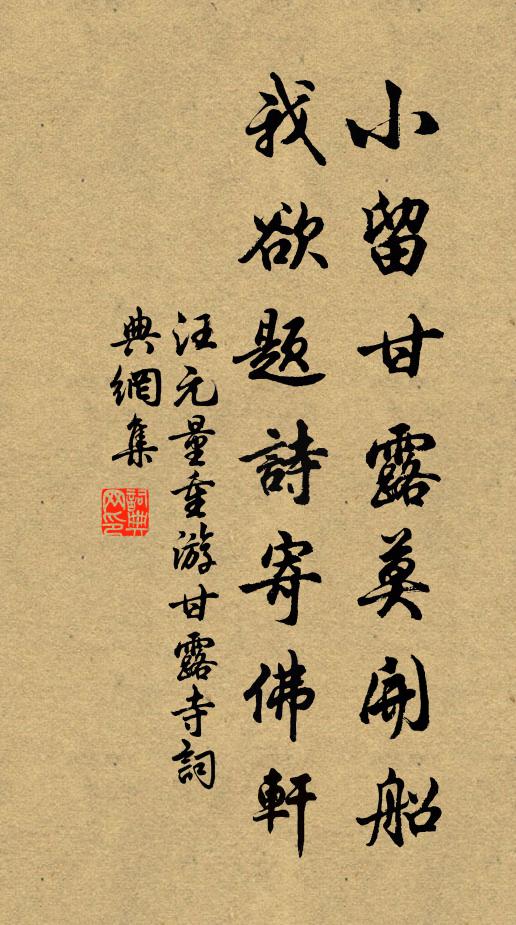 小留甘露莫開船
我欲題詩寄佛軒
汪元量重游甘露寺詞
典網集
詞典
网印